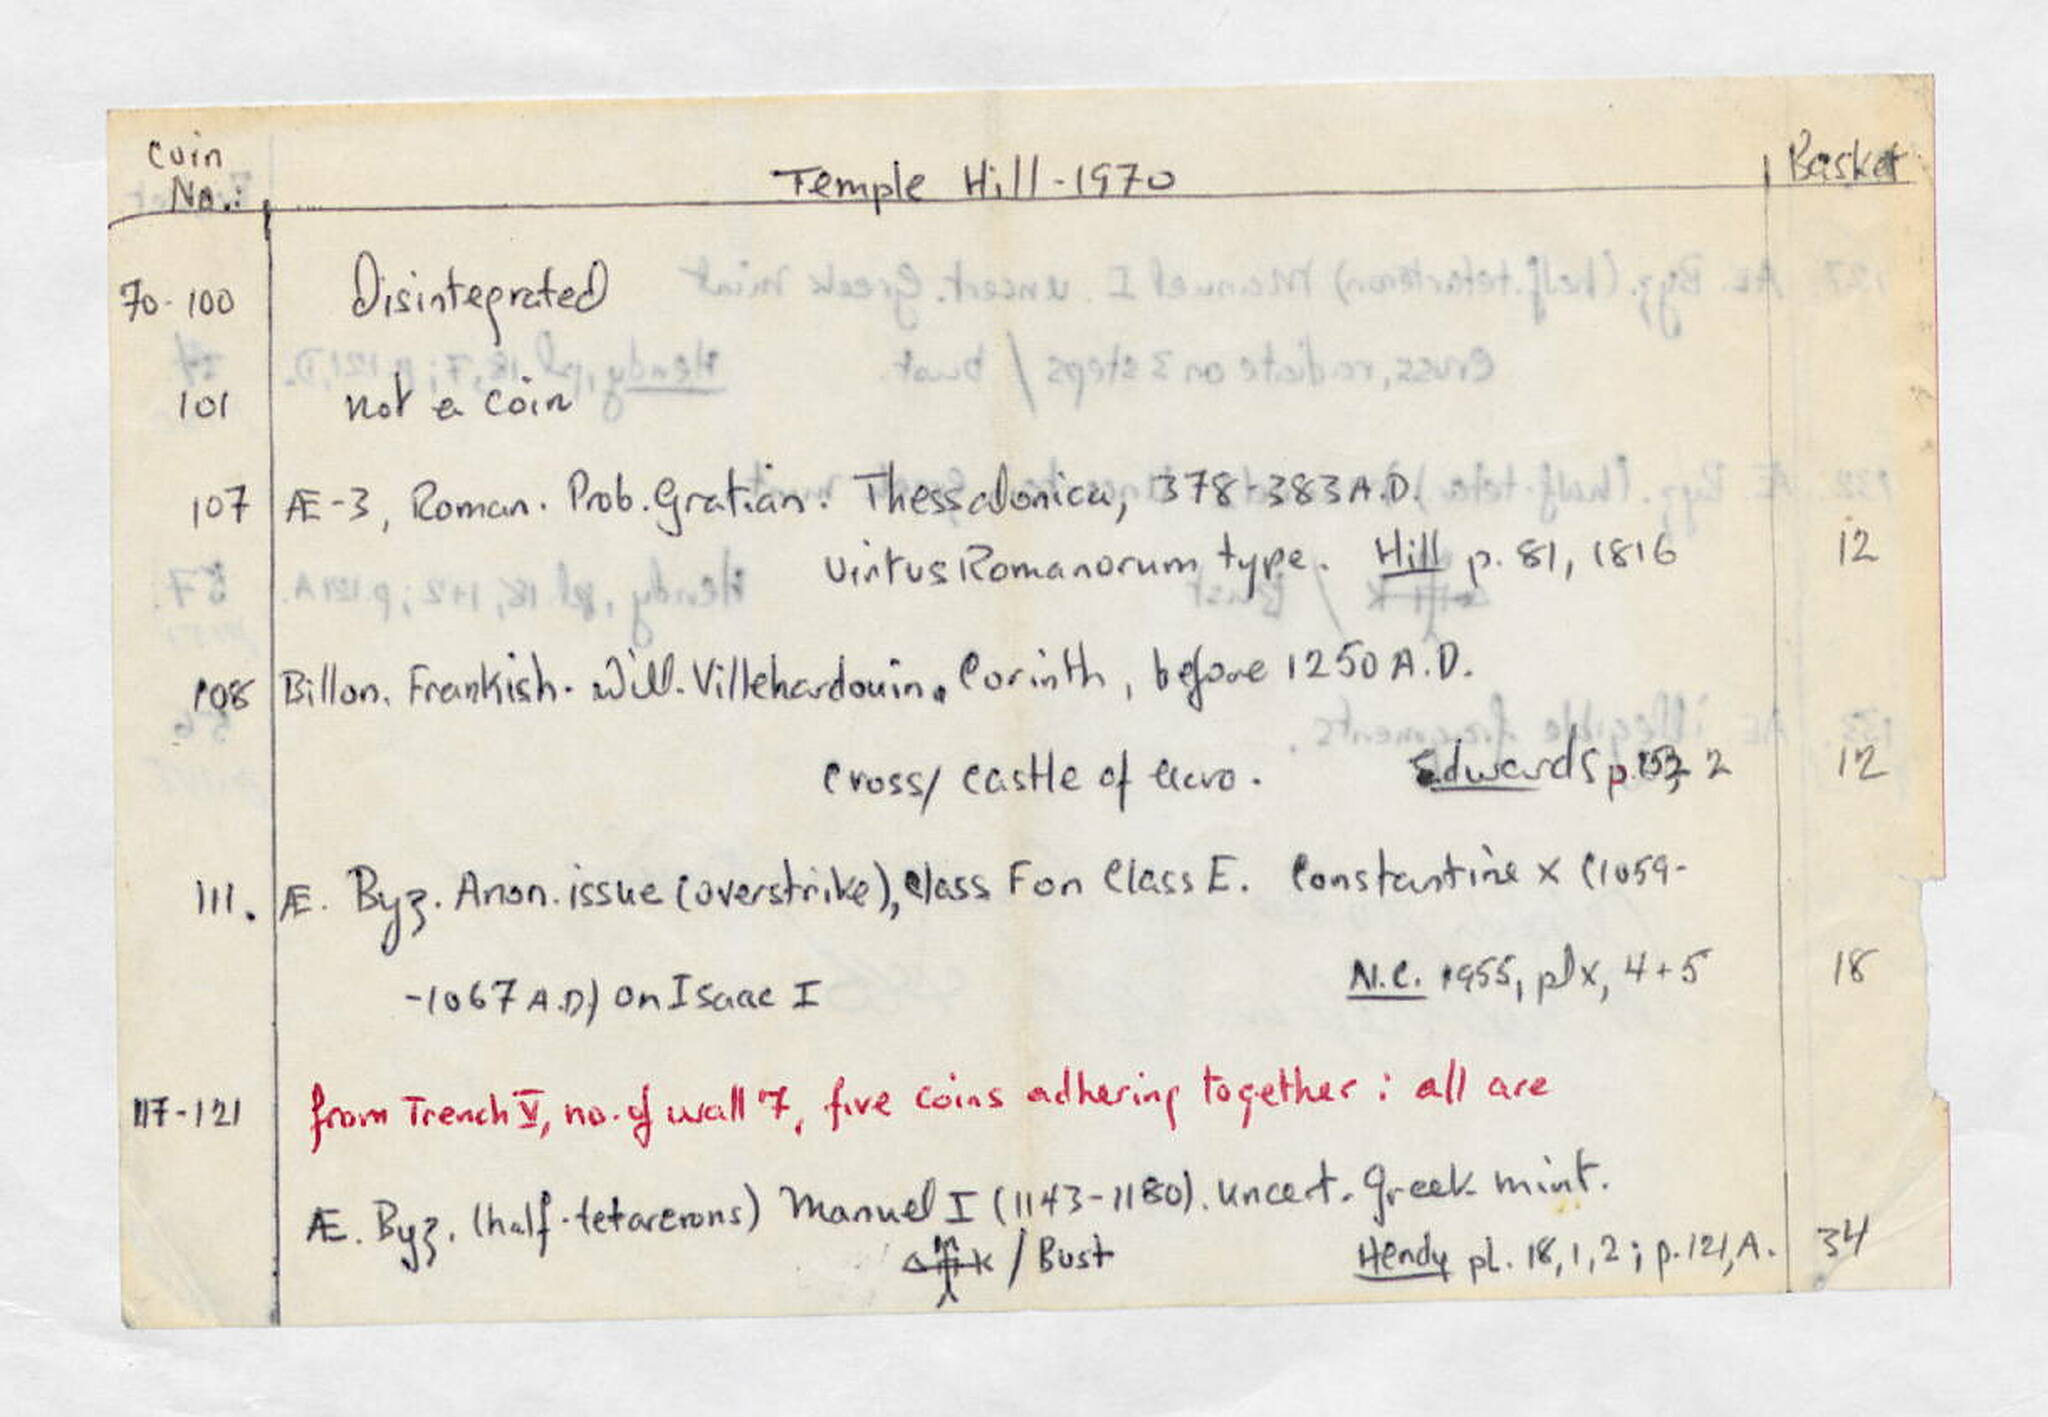 Coin
No.:
Temple Hill - 1970
Basket
70-100 Disintegrated
101 not a coin
107 Æ-3, Roman. Prob. Gratian. Thessalonica, 378-383 A.D.
Virtus Romanorum type. Hill p. 81, 1816 12
108 Billon. Frankish. Will. Villehardouin. Corinth, before 1250 A.D.
Cross/ castle of acro. Edwards p. 2 12
111. Æ. Byz. Anon. issue (overstrike), Class F on Class E. Constantine X (1059-
-1067 A.D) on Isaac I N.C. 1955, pl x, 4+5 18
117-121 from Trench V, no. of wall 7, five coins adhering together: all are
Æ. Byz. (half-tetarerons) Manuel I (1143-1180). uncert. Greek mint.
/ Bust Hendy pl. 18, 1, 2; p. 121, A. 34